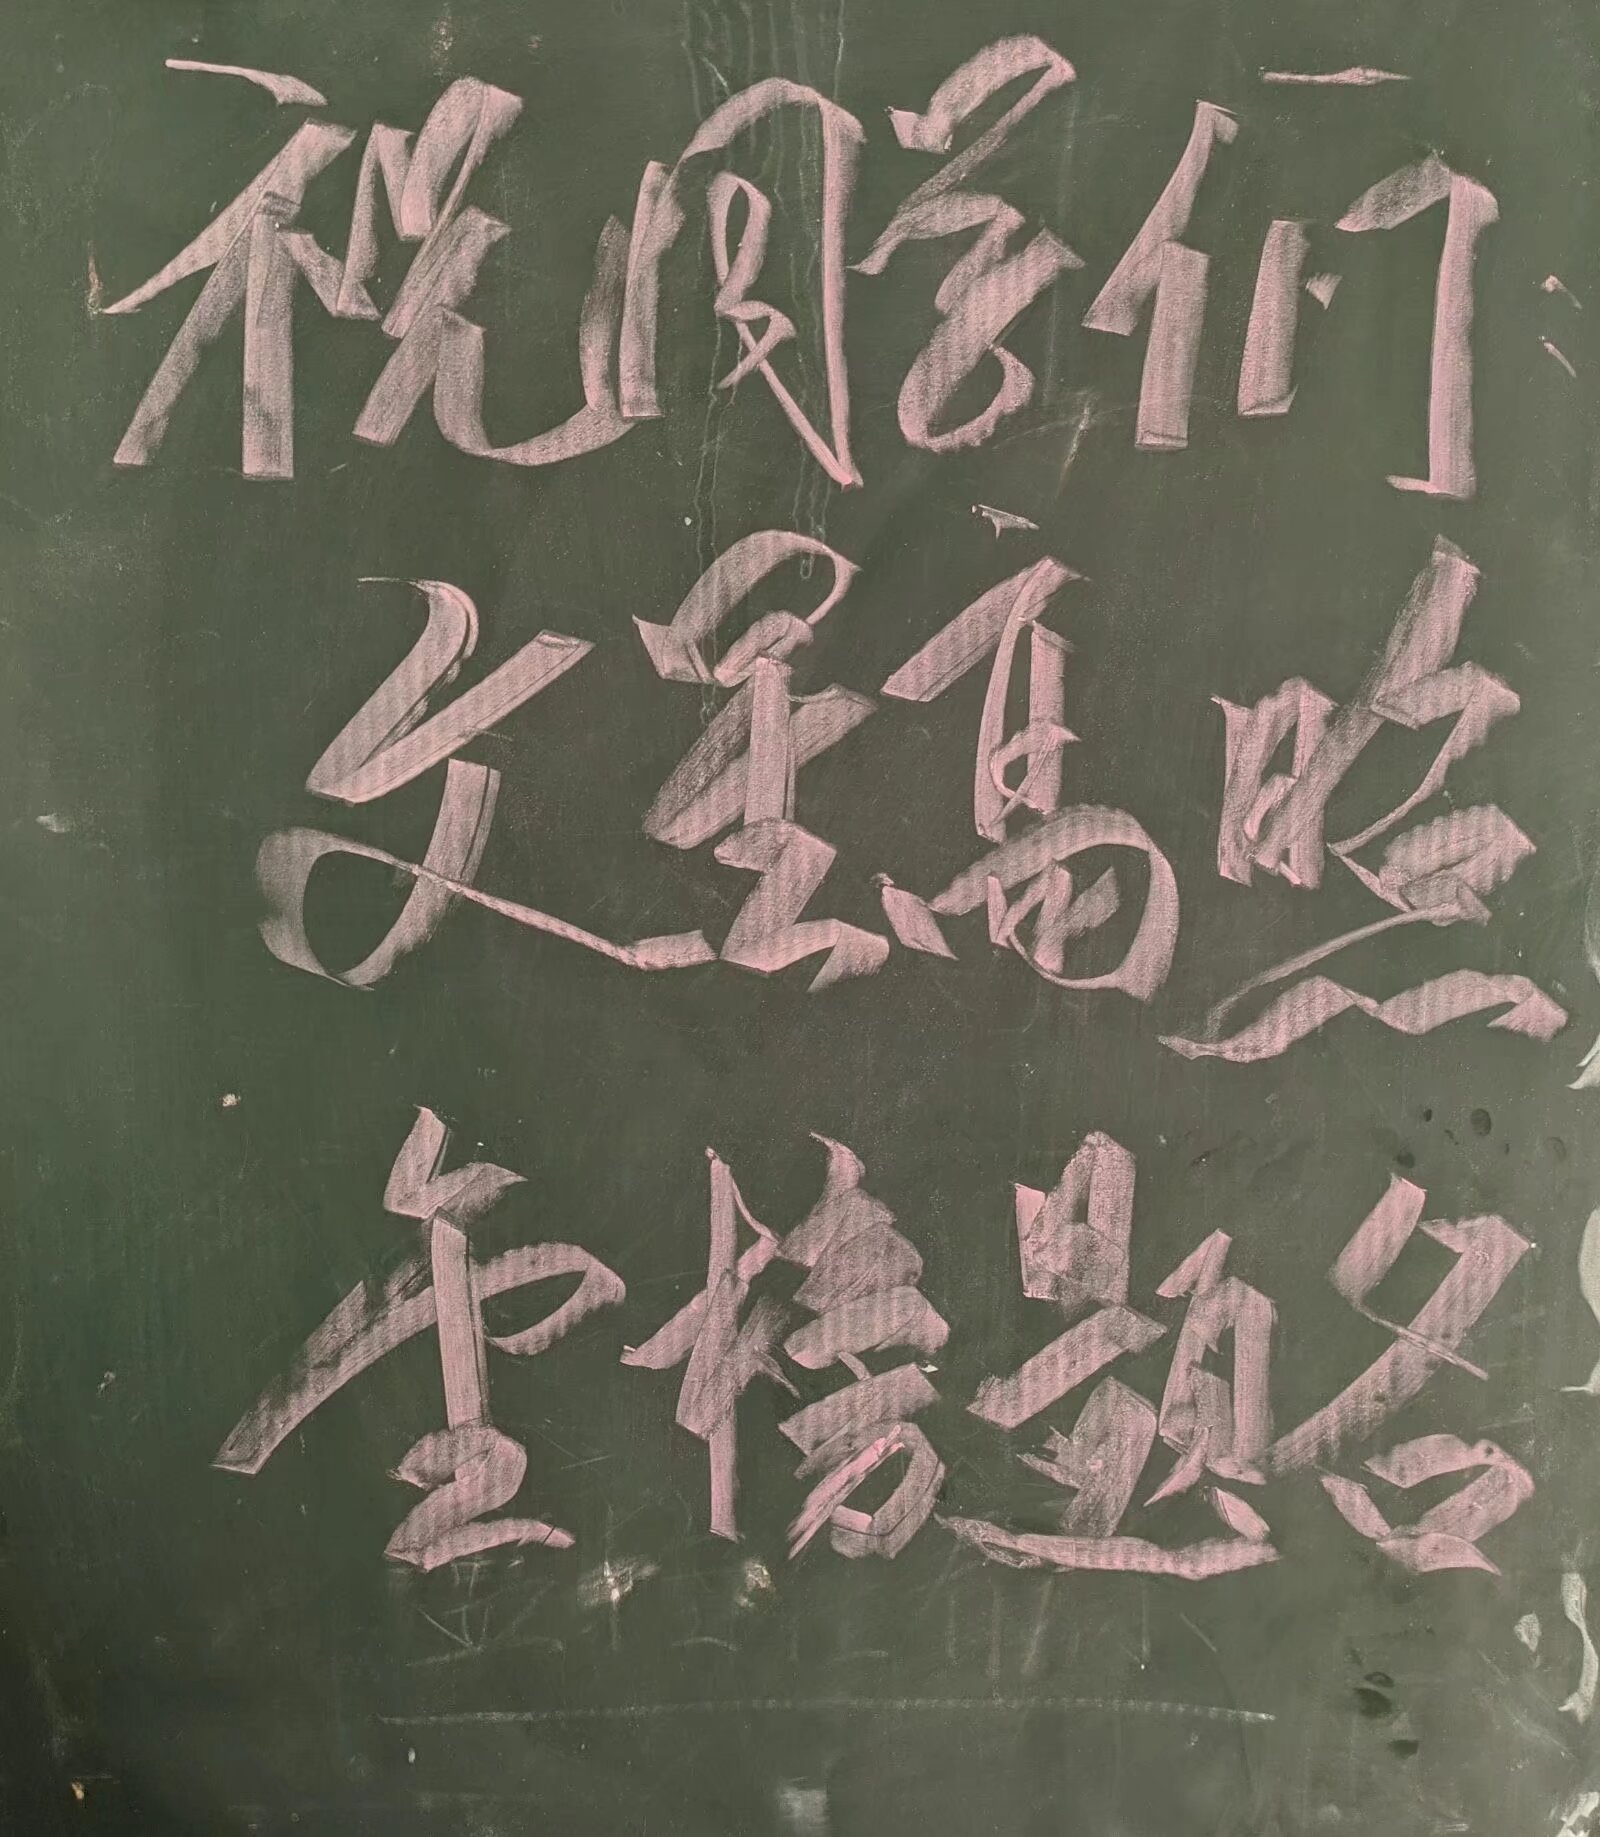 祝同学们:
文星高照
金榜题名